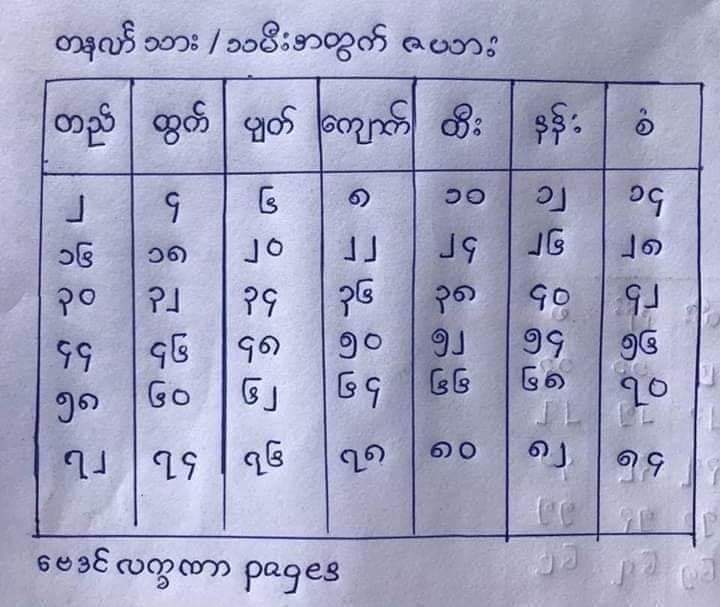 တနင်္လာ သား / သမီးအတွက် ဇယား
တည် ထွက် ပျတ် ကျောက် ထီး နန်း စံ
၂ ၄ ၆ ၈ ၁၀ ၁၂ ၁၄
၁၆ ၁၈ ၂၀ ၂၂ ၂၄ ၂၆ ၂၈
၃၀ ၃၂ ၃၄ ၃၆ ၃၈ ၄၀ ၄၂
၄၄ ၄၆ ၄၈ ၅၀ ၅၂ ၅၄ ၅၆
၅၈ ၆၀ ၆၂ ၆၄ ၆၆ ၆၈ ၇၀
၇၂ ၇၄ ၇၆ ၇၈ ၈၀ ၈၂ ၈၄
ဗေဒင်လက္ခဏာ pages